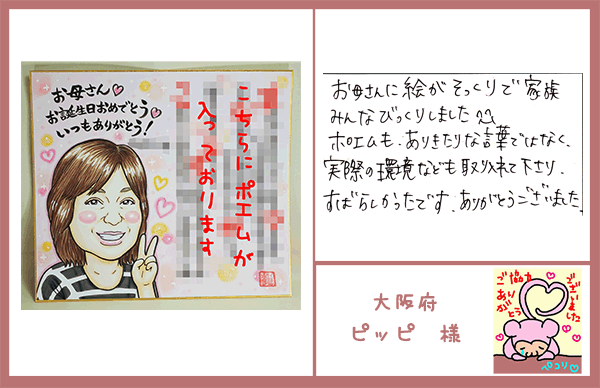 お母さん♡
お誕生日おめでとう♡
いつもありがとう!
こちらにポエムが
入っております
お母さんに絵がそっくりで家族
みんなびっくりしました
ポエムも、ありきたりな言葉ではなく、
実際の環境なども取り入れて下さり、
すばらしかったです。ありがとうございました。
大阪府
ピッピ 様
ご協力
ありがとう
ございました
ペコリ